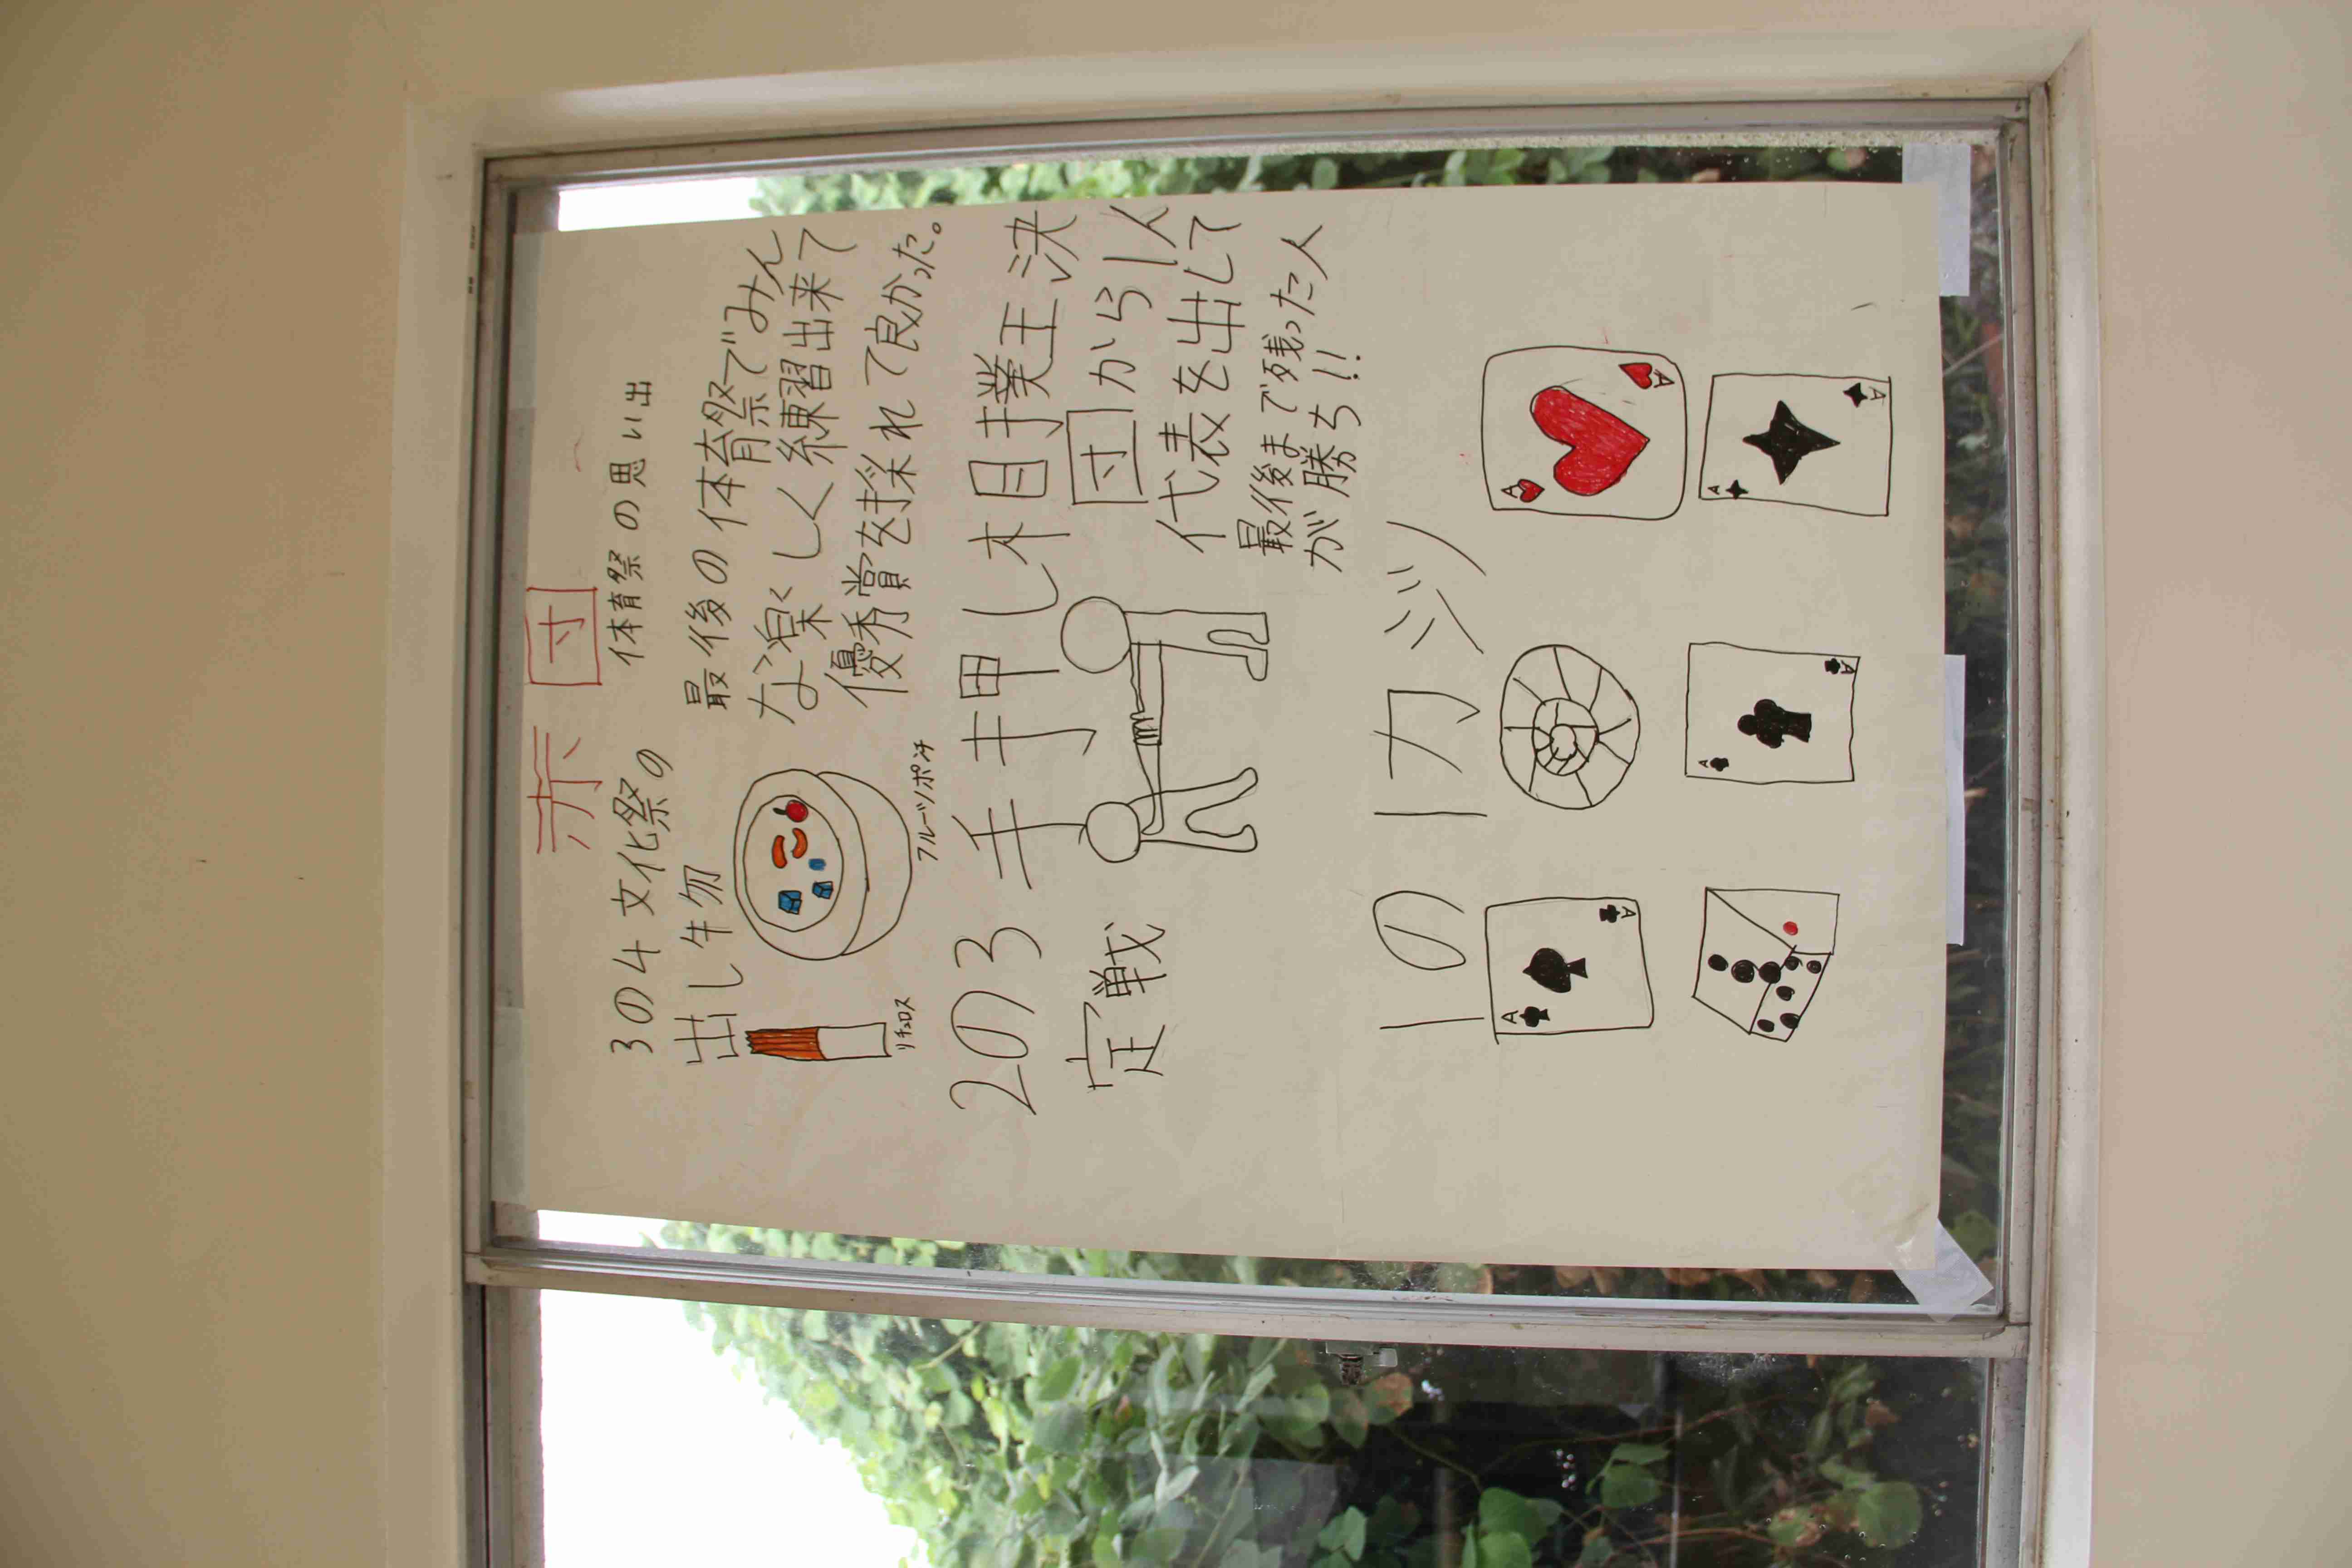 赤団
3の4 文化祭の
出し物
リチュロス
フルーツポンチ
体育祭の思い出
最後の体育祭でみん
な楽しく練習出来て
優秀賞を採れて良かった。
2の3 手押し相撲王決
定戦
団から1人
代表を出して
最後まで残った人
が勝ち!!
1の1カジノ
A
A
A
A
A
A
A
A